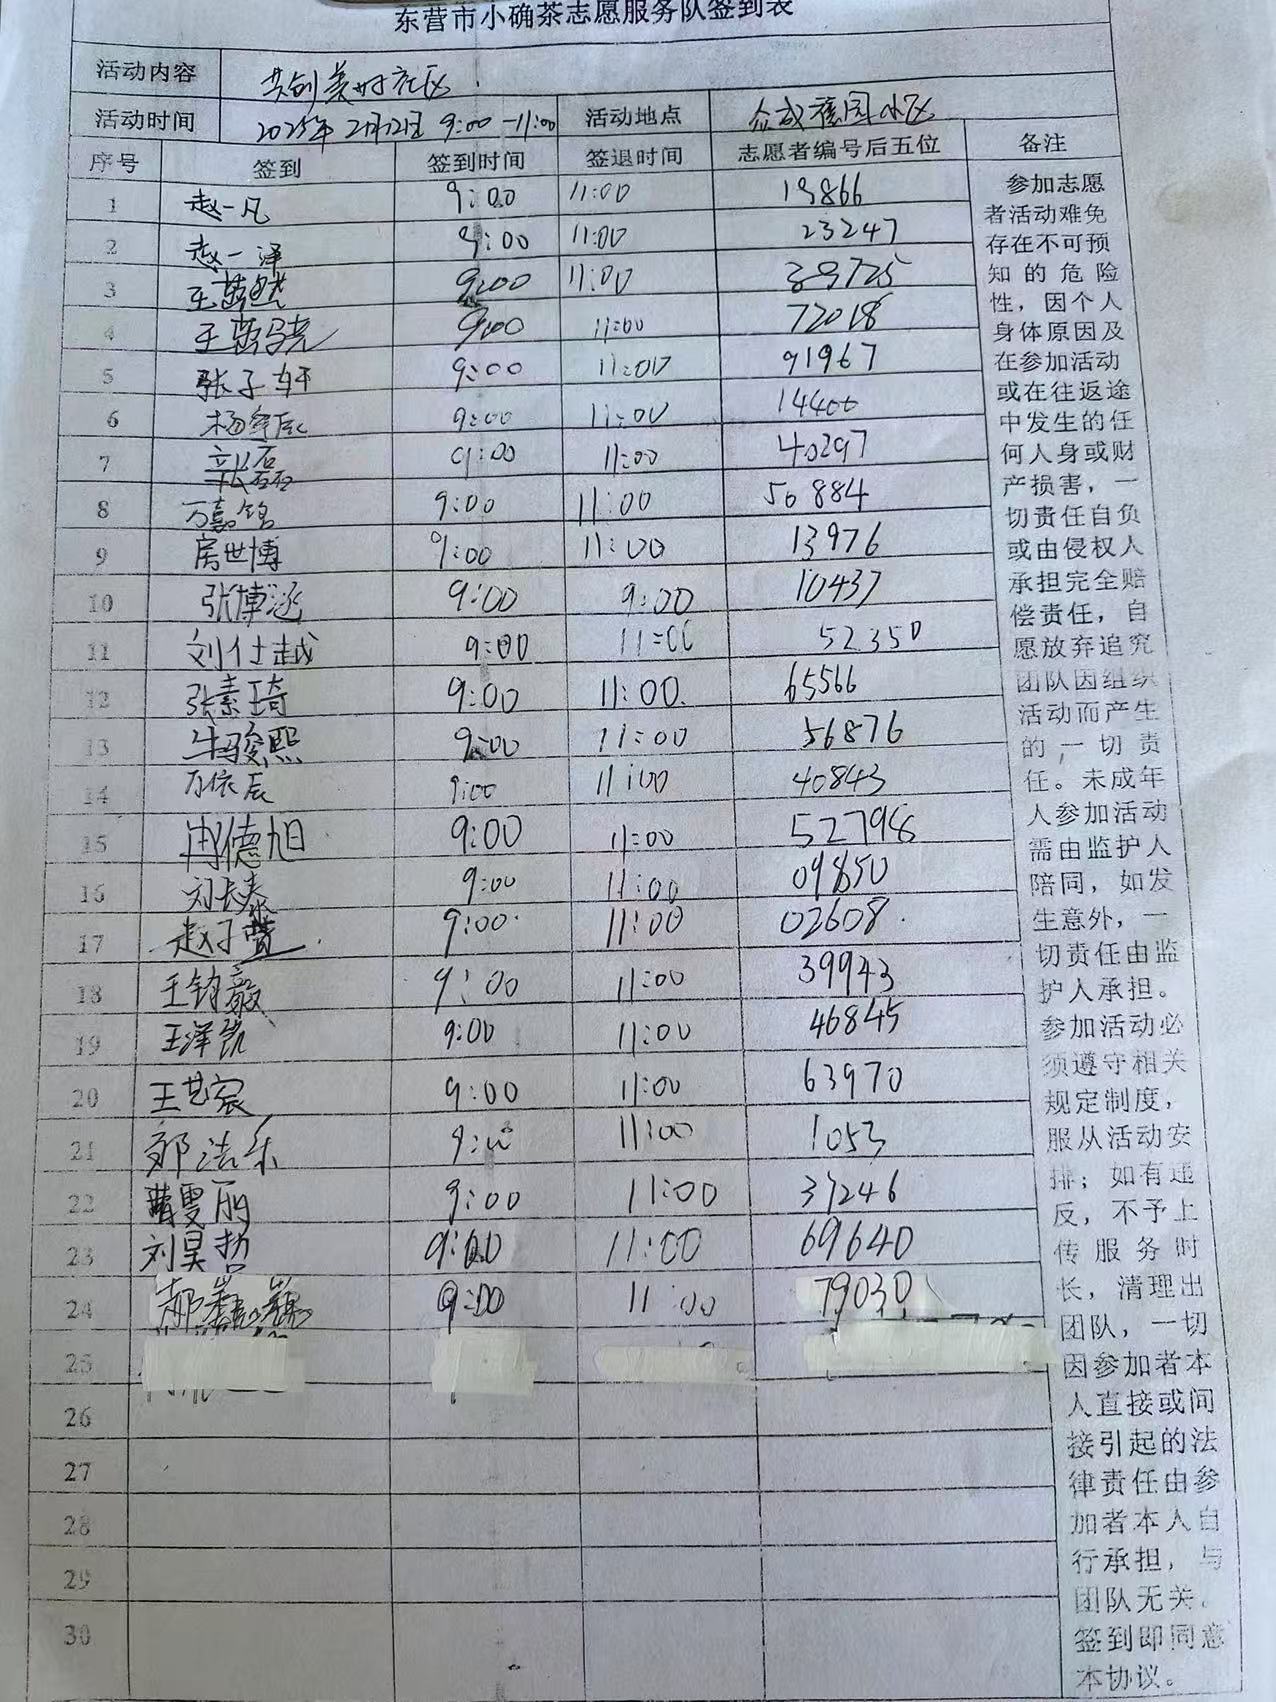 东营市小确茶志愿服务队签到表
活动内容 共创美好社区
活动时间 2025年2月12日 9:00-11:00 活动地点 众成雅园小区
序号 签到 签到时间 签退时间 志愿者编号后五位 备注
1 赵一凡 9:00 11:00 19866
2 赵一泽 9:00 11:00 23247
3 王 9:00 11:00 39725
4 王 9:00 11:00 72018
5 张子轩 9:00 11:00 91967
6 杨 辰 9:00 11:00 14400
7 郭磊 9:00 11:00 40297
8 万嘉铭 9:00 11:00 50884
9 房世博 9:00 11:00 13976
10 张博涵 9:00 9:00 10437
11 刘仕越 9:00 11:00 52350
12 张素琦 9:00 11:00 65566
13 牛骏熙 9:00 11:00 56876
14 万依辰 9:00 11:00 40843
15 冉德旭 9:00 11:00 52798
16 刘长泰 9:00 11:00 09850
17 赵子萱 9:00 11:00 02608
18 王钧毅 9:00 11:00 39943
19 王泽凯 9:00 11:00 46845
20 王艺宸 9:00 11:00 63970
21 郑洁乐 9:00 11:00 1053
22 曹雯丽 9:00 11:00 37246
23 刘昊哲 9:00 11:00 69640
24 郝 9:00 11:00 79030
25
26
27
28
29
30
参加志愿
者活动难免
存在不可预
知的危险
性，因个人
身体原因及
在参加活动
或在往返途
中发生的任
何人身或财
产损害，一
切责任自负
或由侵权人
承担完全赔
偿责任，自
愿放弃追究
团队因组织
活动而产生
的一切责
任。未成年
人参加活动
需由监护人
陪同，如发
生意外，一
切责任由监
护人承担。
参加活动必
须遵守相关
规定制度，
服从活动安
排；如有违
反，不予上
传服务时
长，清理出
团队，一切
因参加者本
人直接或间
接引起的法
律责任由参
加者本人自
行承担，与
团队无关。
签到即同意
本协议。